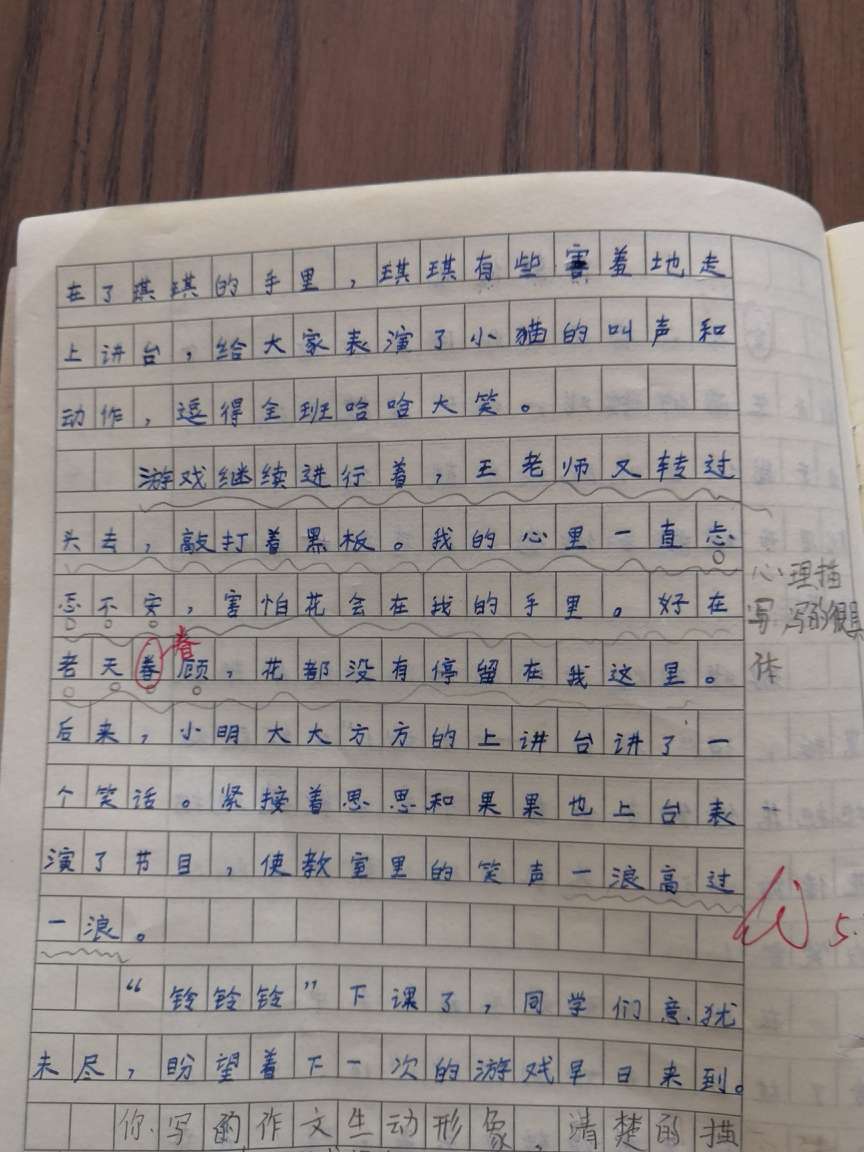 在了琪琪的手里，琪琪有些害羞地走
上讲台，给大家表演了小猫的叫声和
动作，逗得全班哈哈大笑。
游戏继续进行着，王老师又转过
头去，敲打着黑板。我的心里一直忐
忑不安，害怕花会在我的手里。好在
老天眷顾，花都没有停留在我这里。
眷
后来，小明大大方方的上讲台讲了一
个笑话。紧接着思思和果果也上台表
演了节目，使教室里的笑声一浪高过
一浪。
“铃铃铃”下课了，同学们意犹
未尽，盼望着下一次的游戏早日来到。
你写的作文生动形象，清楚的描
心理描
写写的很具
体
优 5.